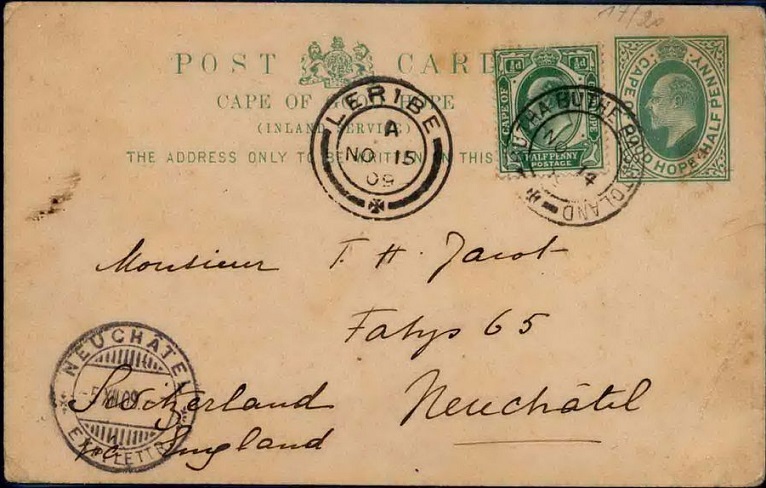 17/20
POST CARD
CAPE OF GOOD HOPE
(INLAND SERVICE)
THE ADDRESS ONLY TO BE WRITTEN ON THIS
½d ½d
CAPE OF
HALF PENNY
POSTAGE
CAPE GOOD HOPE HALF PENNY
LERIBE
A
NO 15
09
BUTHA BUTHE BASUTOLAND
NO 14
Monsieur F. H. Jacot
Fahys 65
Neuchâtel
Switzerland
via England
NEUCHÂTEL
-5 XII 09
EXP. LETTR.